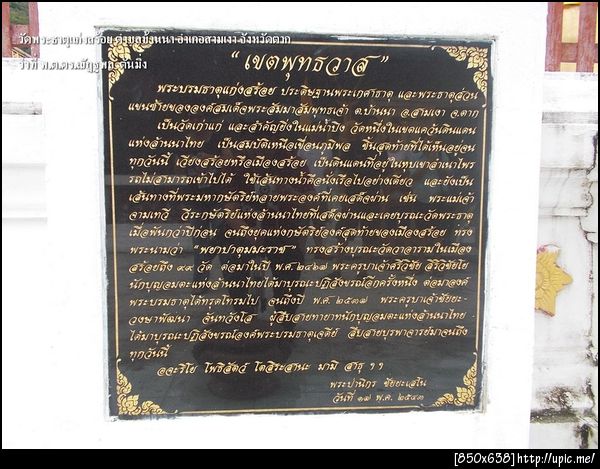 วัดพระธาตุแก่งสร้อย ตำบลบ้านนา อำเภอสามเงา จังหวัดตาก
ว่าที่ พ.ต.ดร.
"เขตพุทธวาส"
พระบรมธาตุแก่งสร้อย ประดิษฐานพระเกศาธาตุ และพระธาตุส่วน
แขนซ้ายขององค์สมเด็จพระสัมมาสัมพุทธเจ้า ต.บ้านนา อ.สามเงา จ.ตาก
เป็นวัดเก่าแก่ และสำคัญยิ่งในแม่น้ำปิง วัดหนึ่งในเขตแคว้นดินแดน
แห่งล้านนาไทย เป็นสมบัติเหนือเขื่อนภูมิพล ชิ้นสุดท้ายที่ได้เห็นอยู่จน
ทุกวันนี้ เวียงสร้อยหรือเมืองสร้อย เป็นดินแดนที่อยู่ในหุบเขาลำเนาไพร
รถไม่สามารถเข้าไปได้ ใช้เส้นทางน้ำคือนั่งเรือไปอย่างเดียว และยังเป็น
เส้นทางที่พระมหากษัตริย์หลายพระองค์ที่เคยเสด็จผ่าน เช่น พระแม่เจ้า
จามเทวี วีระกษัตริย์แห่งล้านนาไทยที่เสด็จผ่านและเคยบูรณะวัดพระธาตุ
เมื่อพันกว่าปีก่อน จนถึงยุคแห่งกษัตริย์องค์สุดท้ายของเมืองสร้อย ทรง
พระนามว่า "พยาปาอุมมะราช" ทรงสร้างบูรณะวัดวาอารามในเมือง
สร้อยถึง ๙๙ วัด ต่อมาในปี พ.ศ.๒๔๖๗ พระครูบาเจ้าศรีวิชัย สิริวิชัยโย
นักบุญอมตะแห่งล้านนาไทยได้มาบูรณะปฏิสังขรณ์อีกครั้งหนึ่ง ต่อมาองค์
พระบรมธาตุได้ทรุดโทรมไป จนถึงปี พ.ศ.๒๕๓๗ พระครูบาเจ้าชัยยะ-
วงษาพัฒนา จันทวังโส ผู้สืบสายทายาทนักบุญอมตะแห่งล้านนาไทย
ได้มาบูรณะปฏิสังขรณ์องค์พระบรมธาตุเจดีย์ สืบสายบูรพาจารย์มาจนถึง
ทุกวันนี้
อจะริโย โพธิสัตว์ โตสิระสานะ มามิ สาธุ ฯ ฯ
พระปานิกร ชัยยะเสโน
วันที่ ๑๗ พ.ค. ๒๕๔๓
[850x638]http://upic.me/